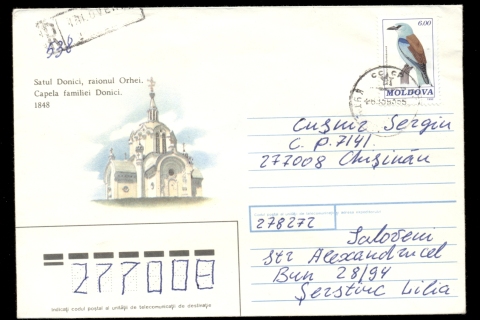 538
Satul Donici, raionul Orhei.
Capela familiei Donici.
1848
6.00
MOLDOVA
Cușnir Sergiu
C.P. 7141
277008 Chișinău
278272
Ialoveni
Str Alexandricel
Bun 28/94
Lilia
277008
Indicați codul poștal al unității de telecomunicații de destinație